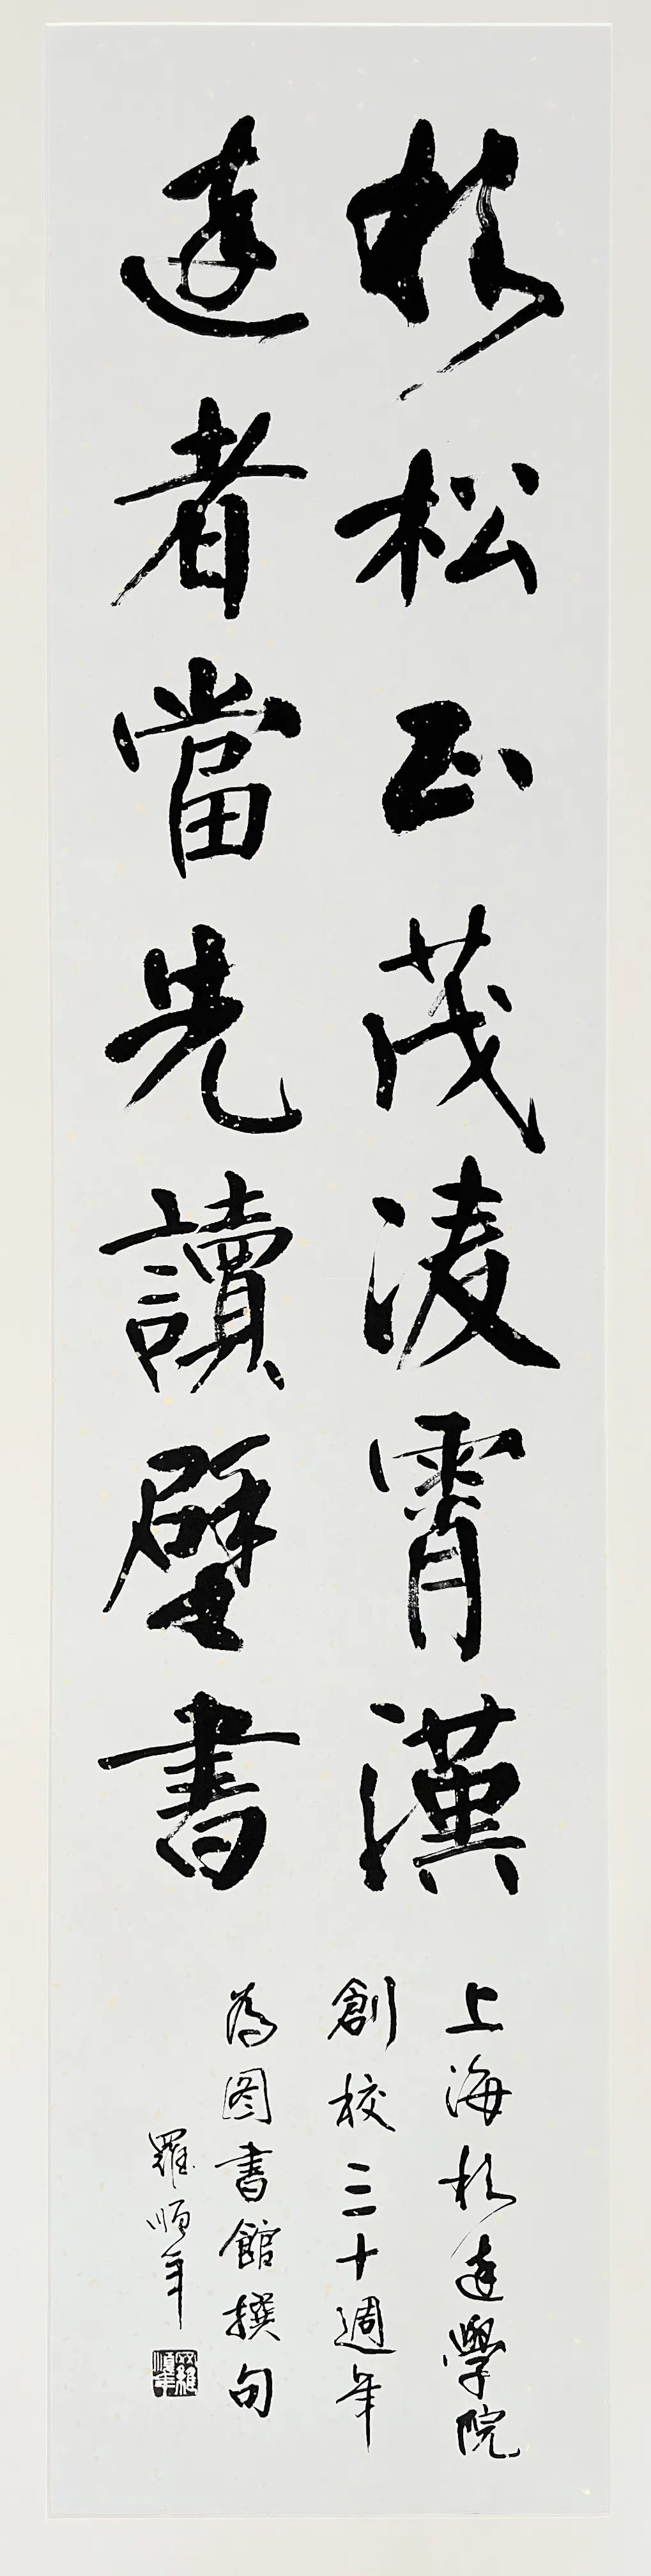 杉松正茂淩霄漢
達者當先讀壁書
上海杉達學院
創校三十週年
為图書館撰句
羅順年